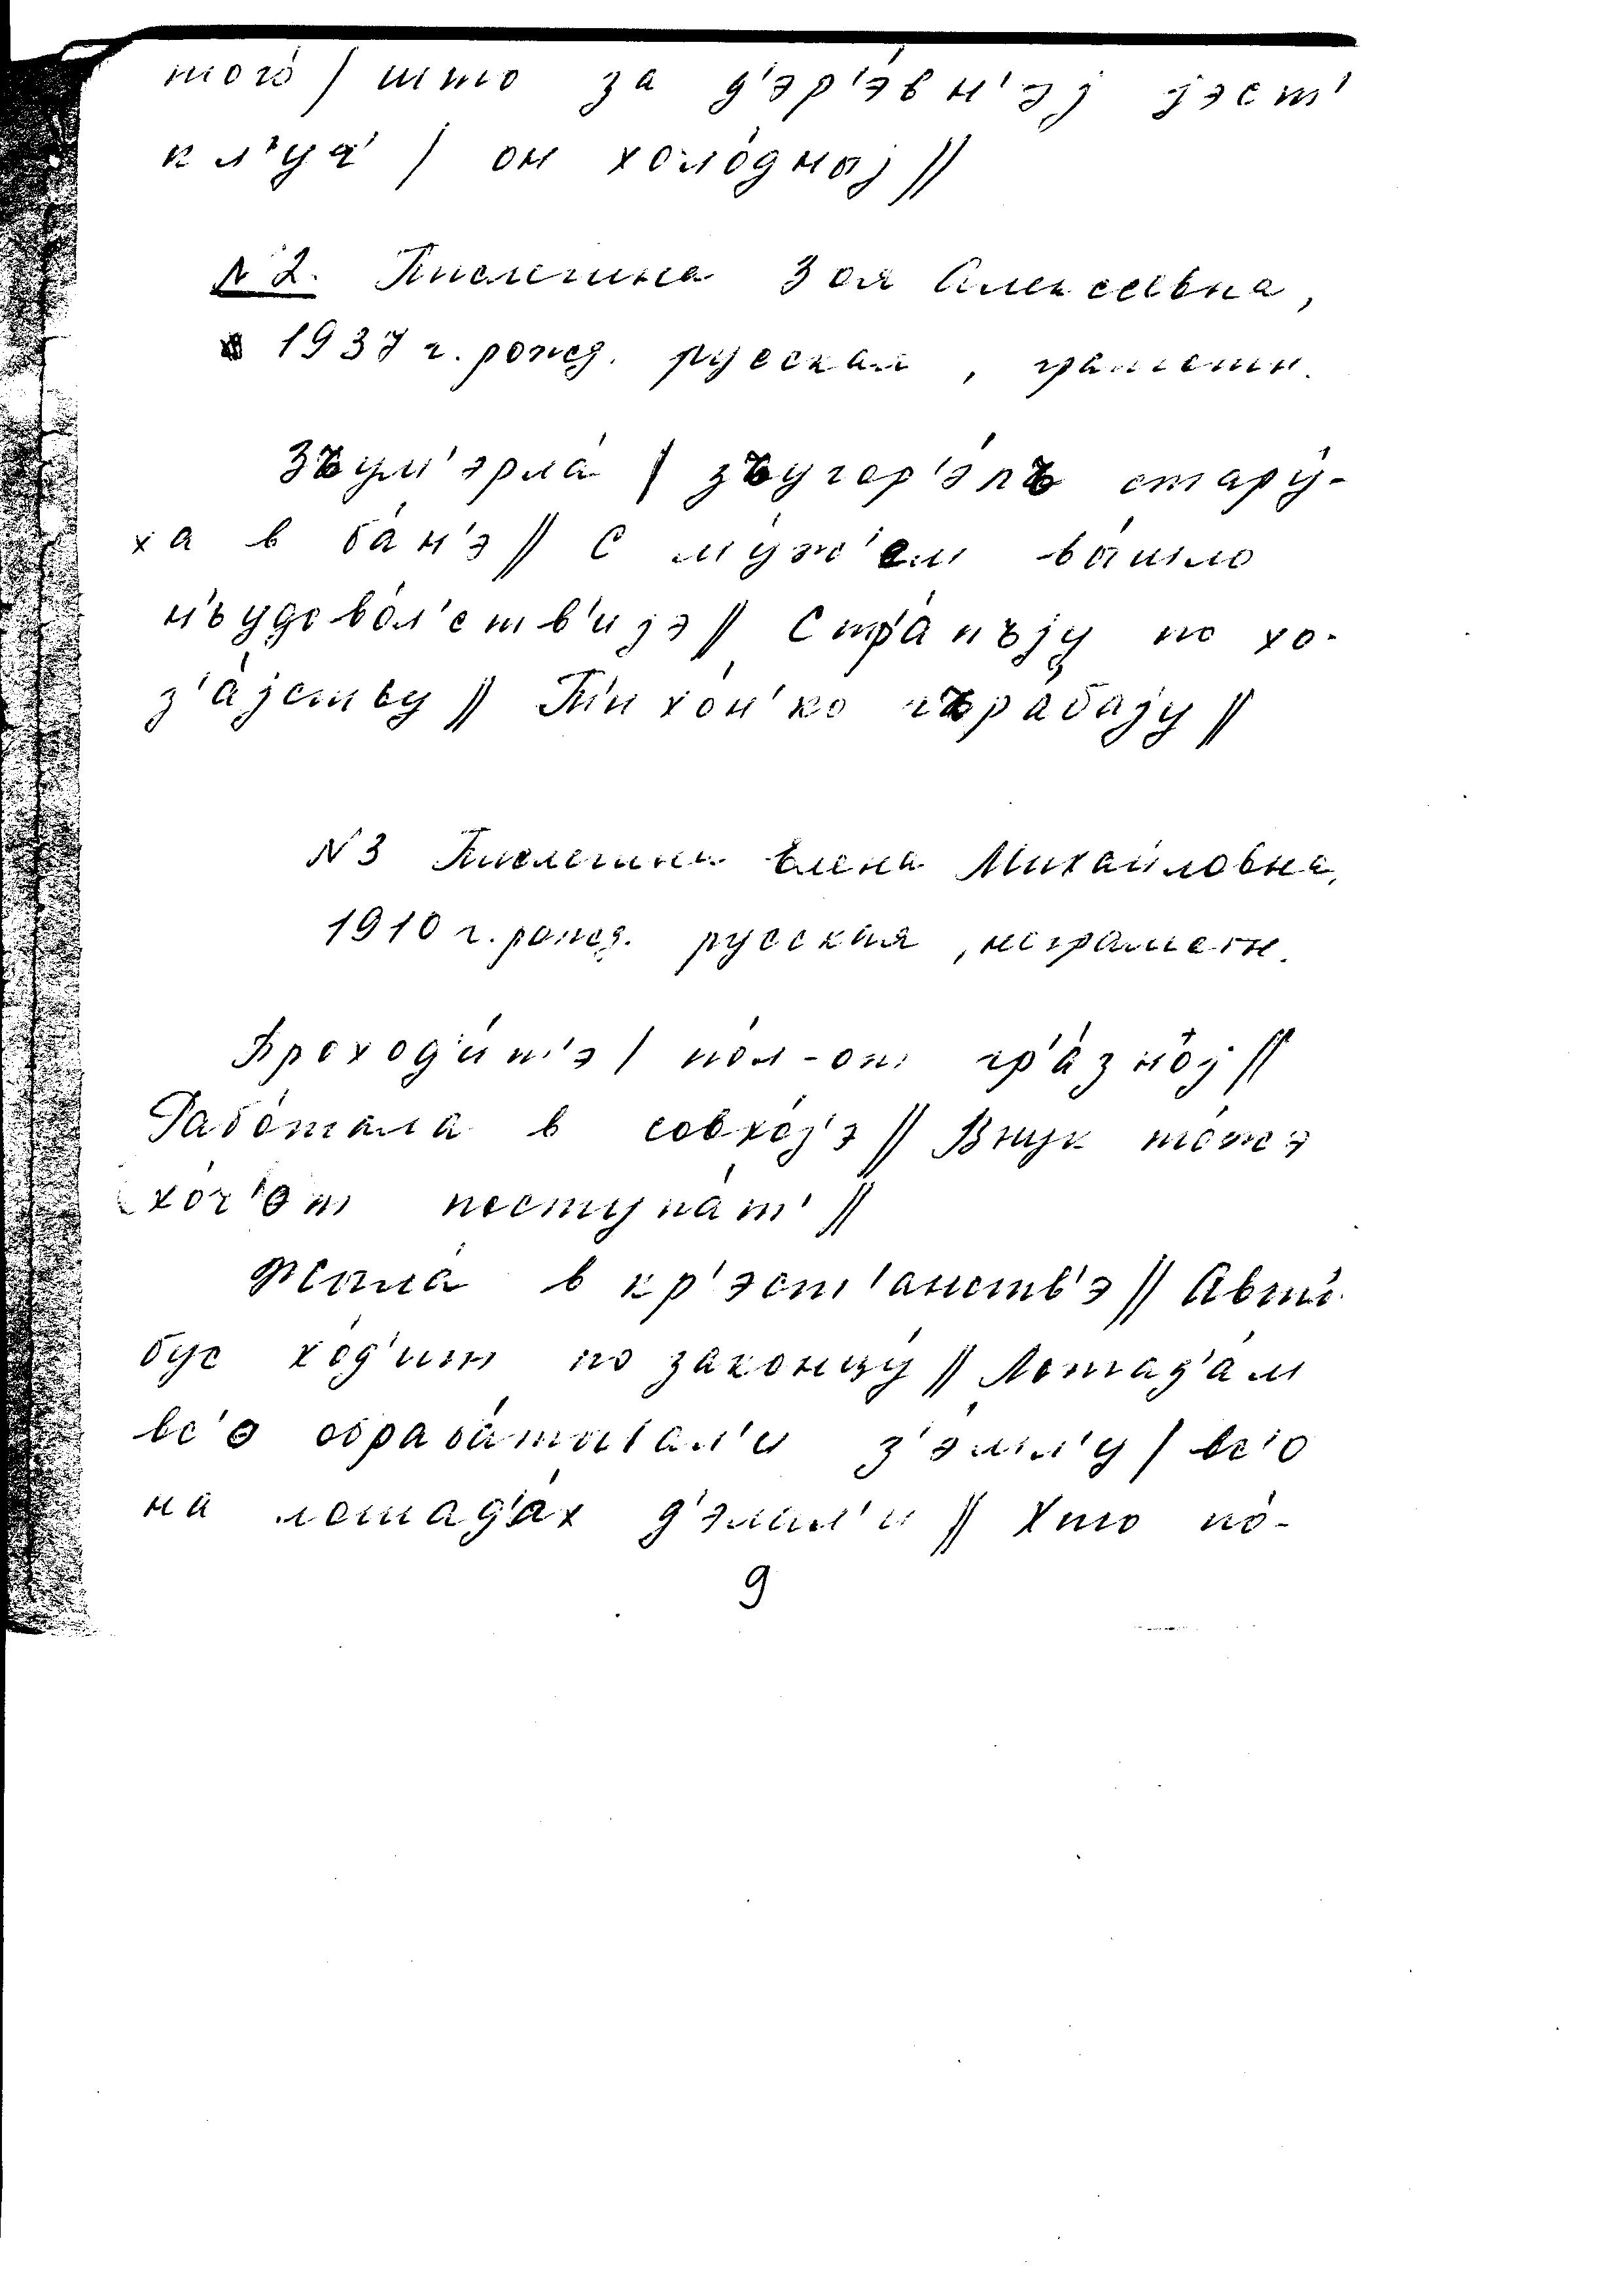 того́ / што за д'эр'э́вн'эј јэст'
кл'уч' / он холо́дныј //
N 2. Зоя Алексеевна,
1937 г. рожд. русская, грамотн.
Зъум'эрла́ / зъугор'э́лъ стару́-
ха в ба́н'э // С му́ж'ем вы́шло
н'ъудово́л'ств'ијэ // Стр'а́пъју по хо-
з'а́јству // Т'ихо́н'ко гъра́бају //
N 3 Елена Михайловна,
1910 г. рожд. русская, неграмотн.
Проход'и́т'э / по́л-от гр'а́зной //
Рабо́тала в совхо́з'э // Внук то́жэ
хо́ч'от поступа́т' //
Жыла́ в кр'эст'анств'э // Авто́-
бус хо́д'ит по законцу́ // Лошад'а́м
вс'о обраба́тывал'и з'э́мл'у / вс'о
на лошад'а́х д'элал'и // Хто по́-
9